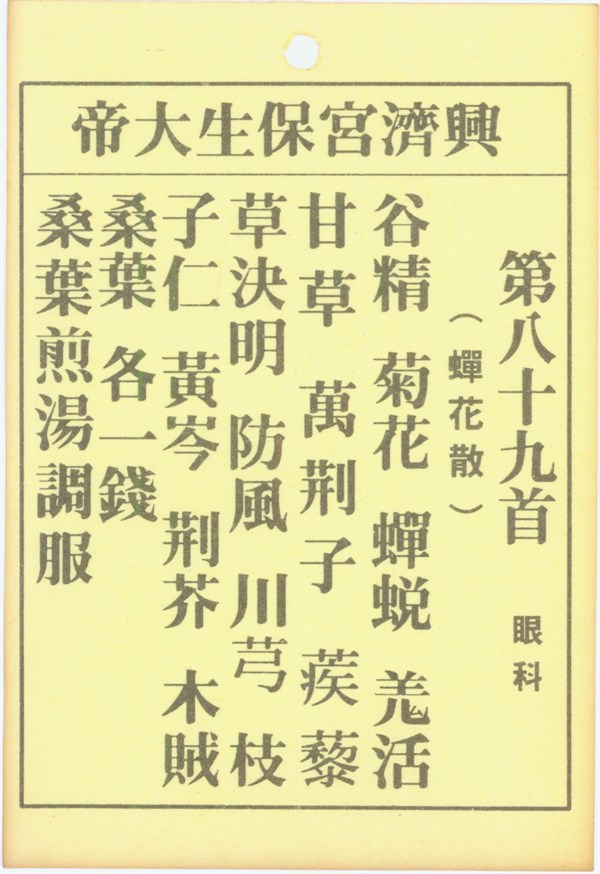 興濟宮保生大帝
第八十九首 眼科
(蟬花散)
谷精 菊花 蟬蛻 羗活
甘草 萬荆子 蒺藜
草決明 防風 川芎 枝
子仁 黃岑 荆芥 木賊
桑葉 各一錢
桑葉煎湯調服